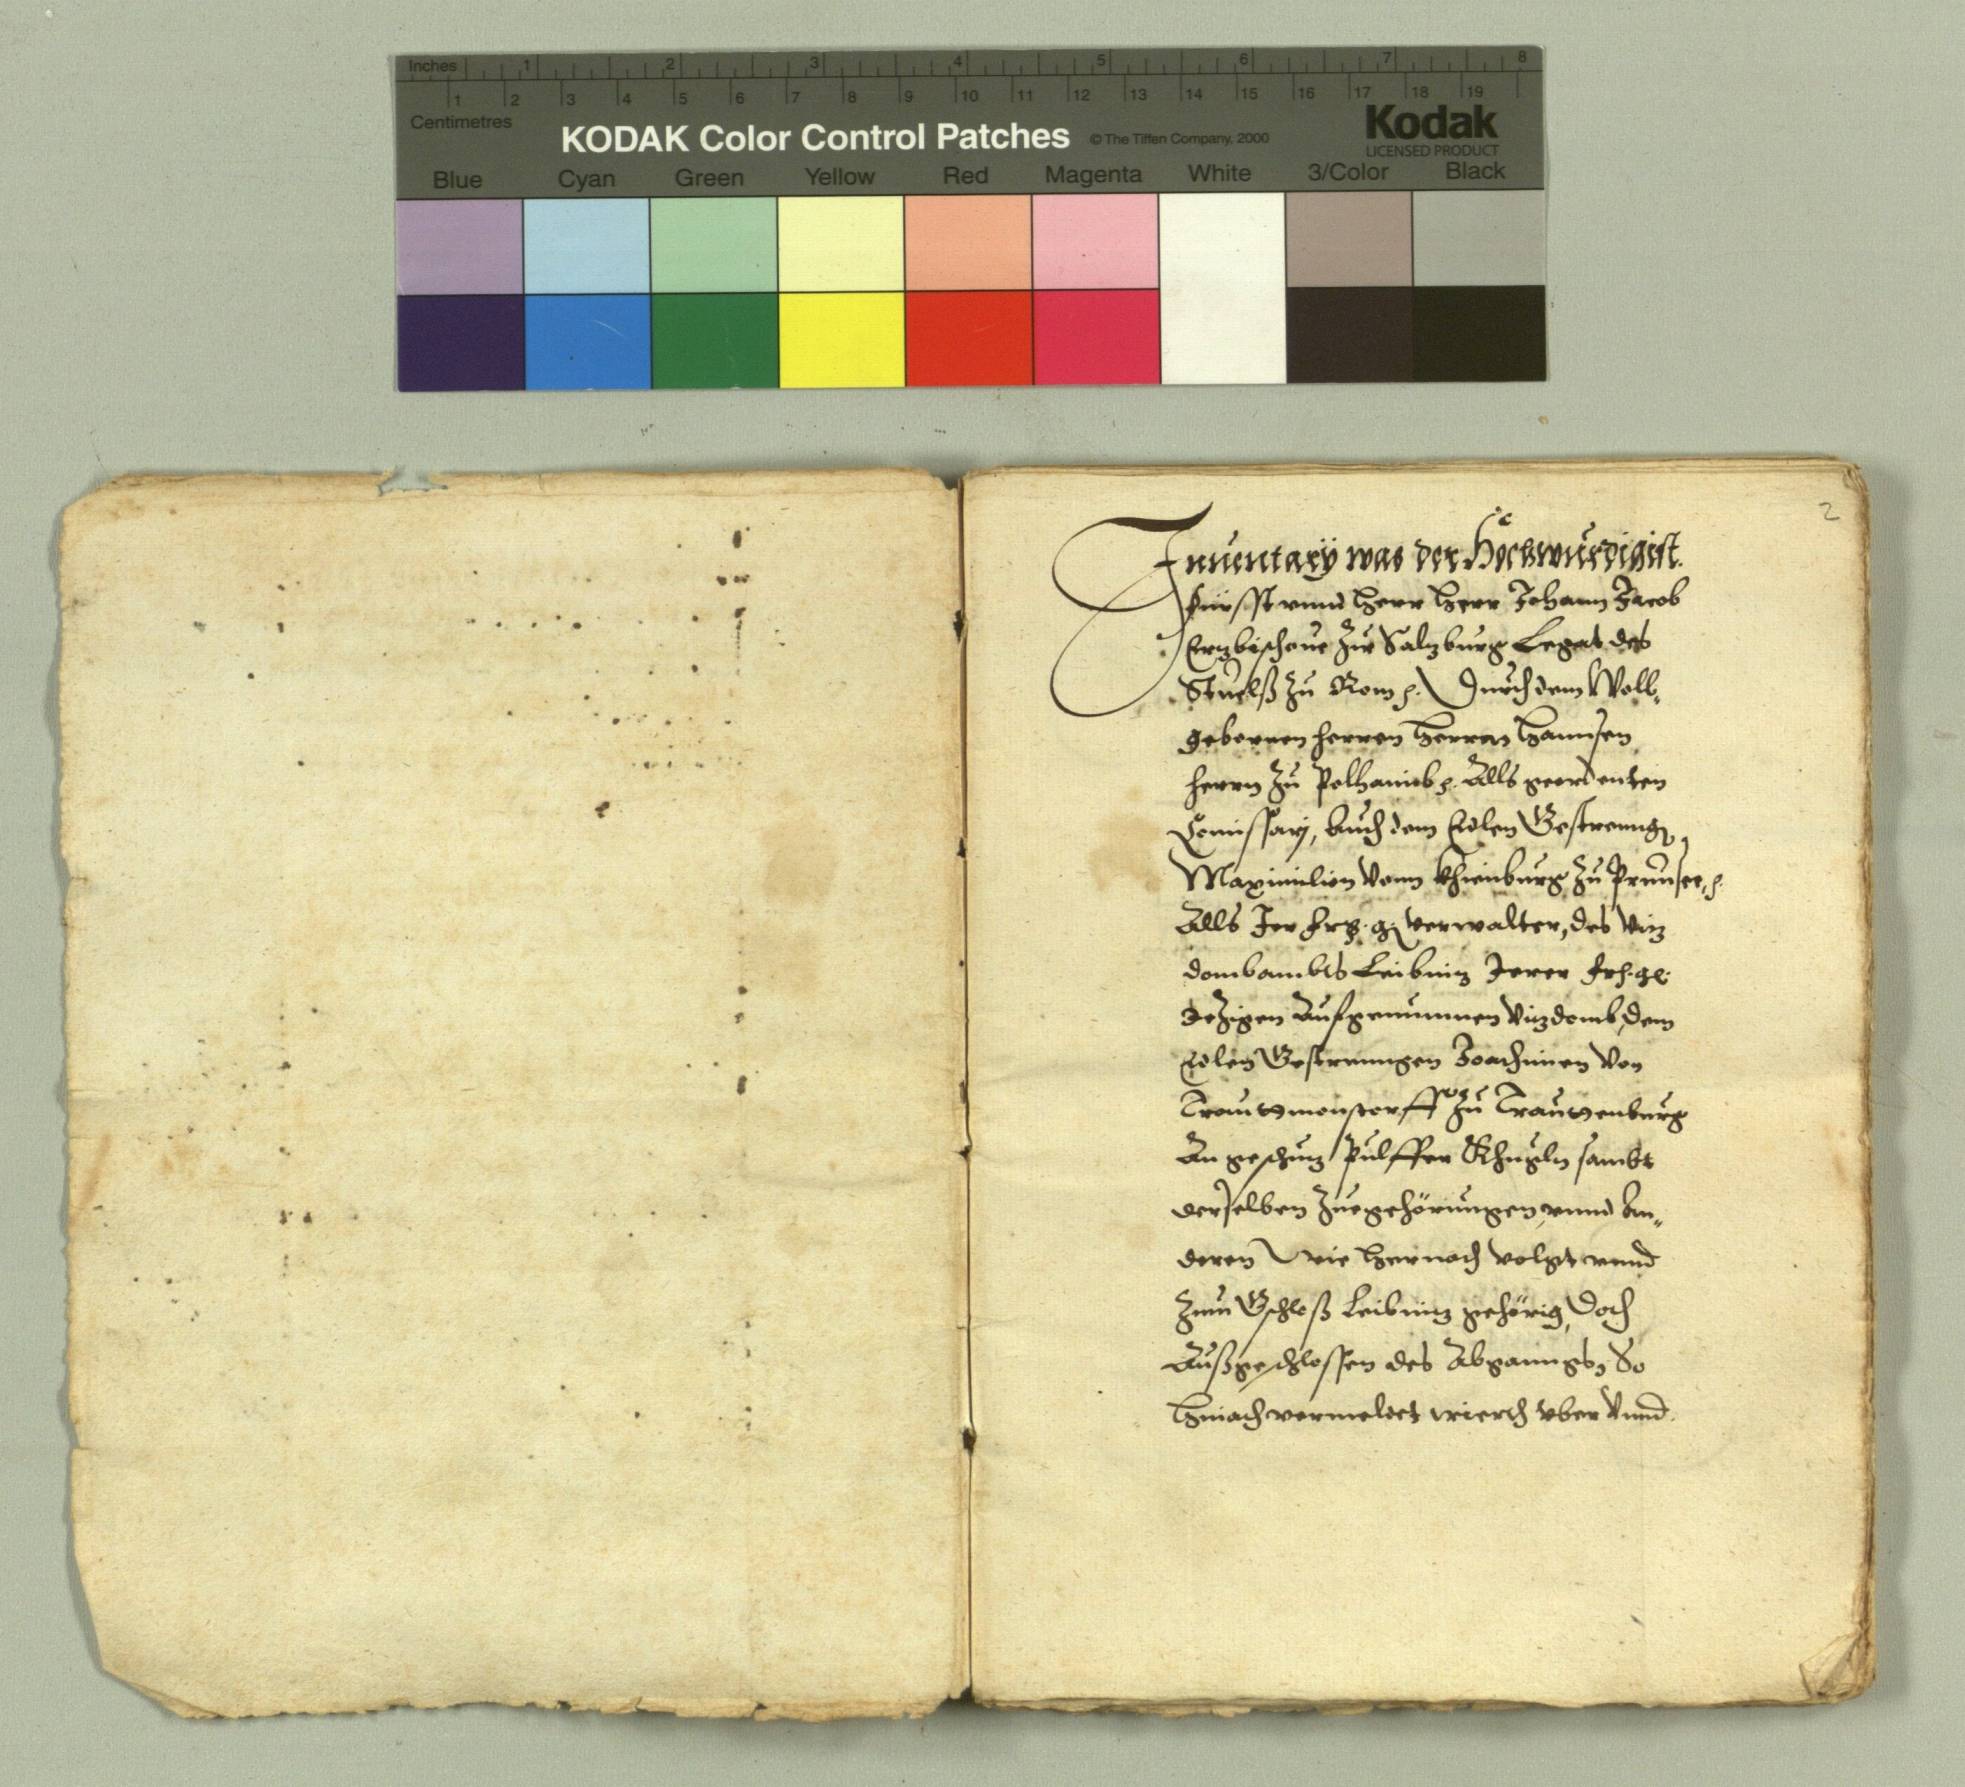 Inches 1 2 3 4 5 6 7 8
1 2 3 4 5 6 7 8 9 10 11 12 13 14 15 16 17 18 19
Centimetres
KODAK Color Control Patches © The Tiffen Company, 2000 Kodak
LICENSED PRODUCT
Blue Cyan Green Yellow Red Magenta White 3/Color Black
2
Inuentarÿ was der Hochwürdigist.
Fürsst vnnd Herr Herr Johann Jacob
Ertzbischoue zu Saltzburg Legat des
Stuelß zu Rom Durch dem Woll-
gebornen herren Herren Hannsen
herrn zu Polhaimb Alls geordenten
Comissarÿ, auch dem Edlen Gestrenng
Maximilien vonn Khienburg zu Prunsee,
Alls Jer verwalter, des Vitz
dombambts Leibnitz Jerer
Aufgenummen Vitzdomb, dem
Edlen Gestrenngen Joachimen von
Trauttmenstorff zu Trauttenburg
An geschütz Pulffer Khugln sambt
derselben zuegehörungen, vnnd An-
deren wie Hernach volgt vnnd
zum Gschloß Leibnitz gehörig, Doch
Außgeschlossen des Abganngs, So
Hernach vermeldet wierdt vber Vnnd